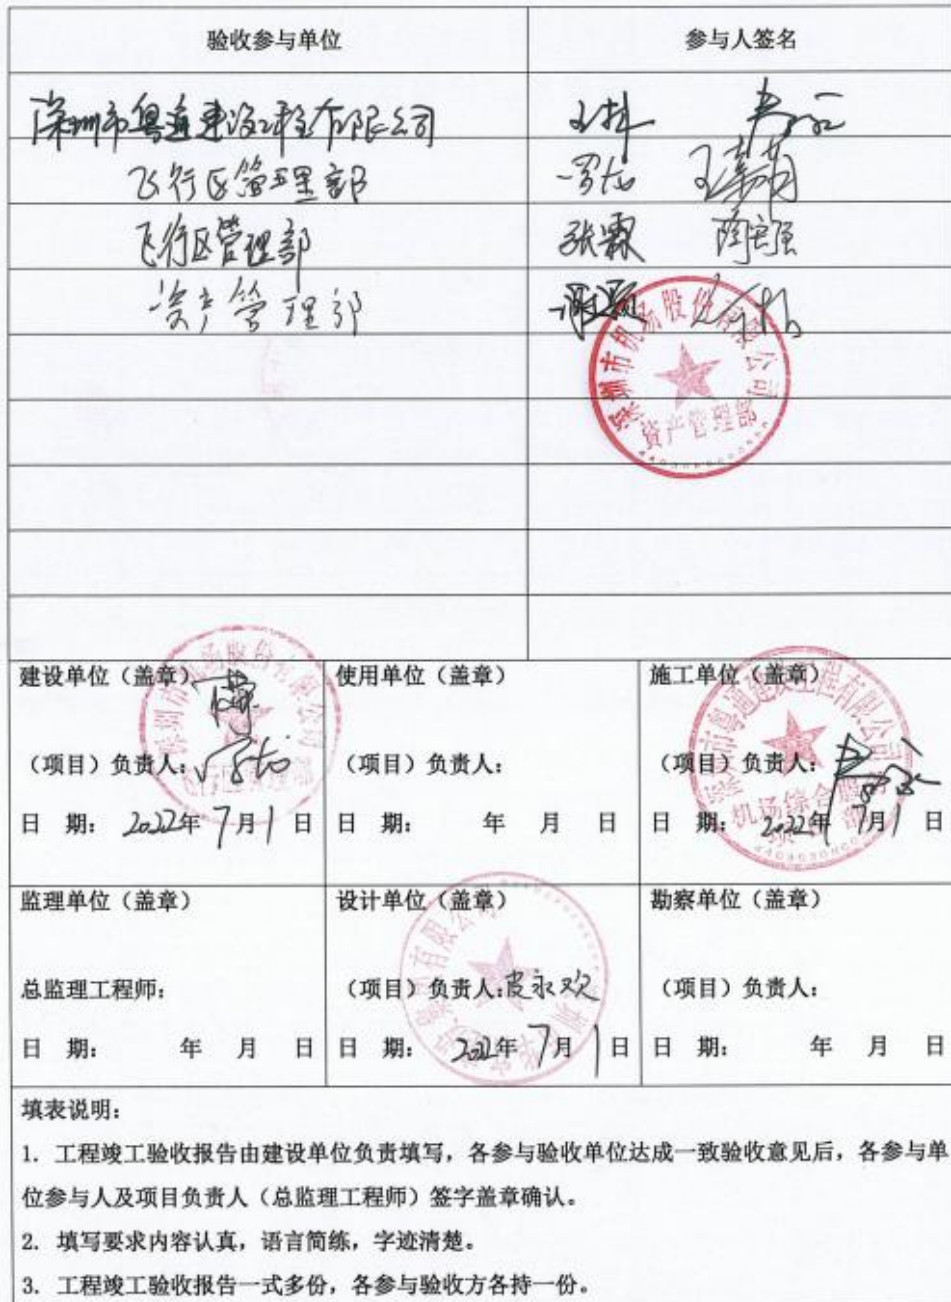 验收参与单位 参与人签名
深圳市粤通建设工程有限公司 王林
飞行区管理部 罗龙
飞行区管理部 张霖 陶宏强
资产管理部
深圳市机场股份有限公司
資产管理部
建设单位（盖章） 使用单位（盖章） 施工单位（盖章）
深圳市机场股份有限公司 深圳市粤通建设工程有限公司
（项目）负责人： （项目）负责人： （项目）负责人：
机场综合
日 期： 2022年 7月 1 日 日 期： 年 月 日 日 期： 2022年 7月 1 日
监理单位（盖章） 设计单位（盖章） 勘察单位（盖章）
总监理工程师： （项目）负责人：皮永欢 （项目）负责人：
日 期： 年 月 日 日 期： 2022年 7月 1 日 日 期： 年 月 日
填表说明：
1. 工程竣工验收报告由建设单位负责填写，各参与验收单位达成一致验收意见后，各参与单
位参与人及项目负责人（总监理工程师）签字盖章确认。
2. 填写要求内容认真，语言简练，字迹清楚。
3. 工程竣工验收报告一式多份，各参与验收方各持一份。